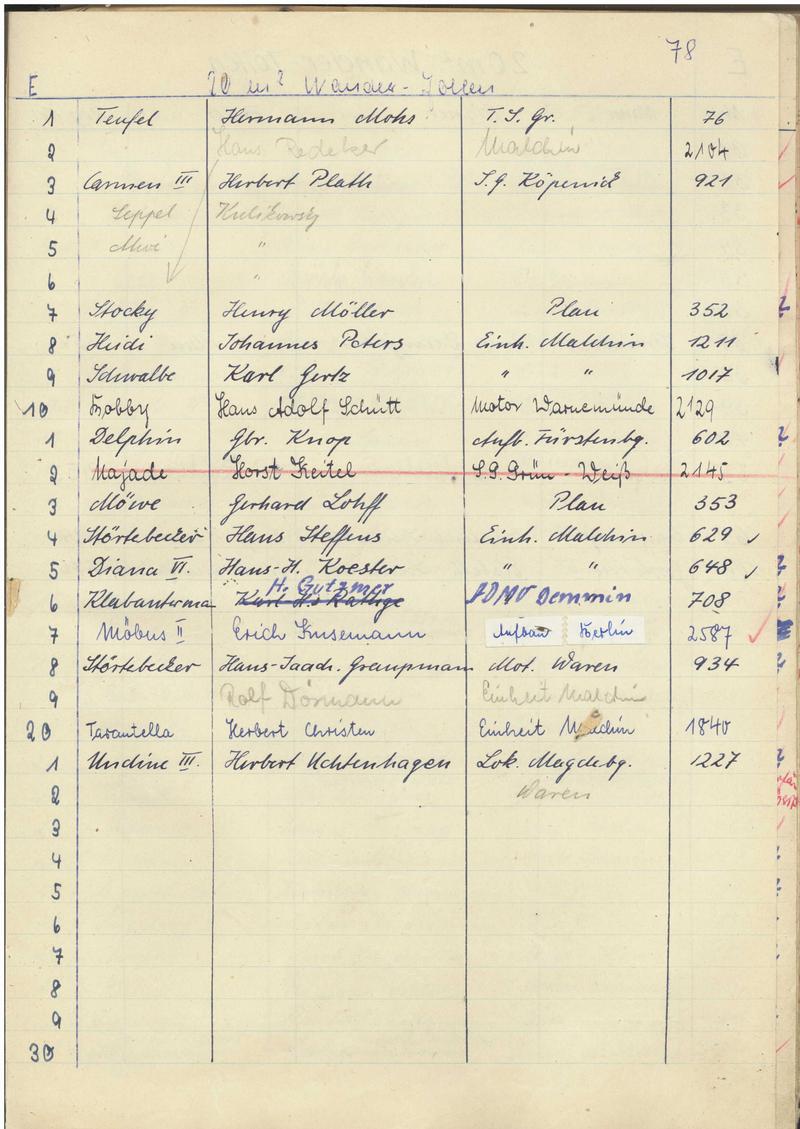 78
E 20 m² Wander-Jollen
1 Teufel Hermann Mohs T. S. Gr. 76
2 Hans Redeker Malchin 2104
3 Carmen III Herbert Plath S. G. Köpenick 921
4 Seppel Kulikowsky
5 "
6 "
7 Stocky Henry Möller Plau 352
8 Heidi Johannes Peters Einh. Malchin 1211
9 Schwalbe Karl Gertz " " 1017
10 Hobby Hans Adolf Schütt Motor Warnemünde 2129
1 Delphin Gbr. Knop Aufb. Fürstenbg. 602
2 Najade Horst Keitel S.G. Grün-Weiß 2145
3 Möwe Gerhard Lohff Plau 353
4 Störtebecker Hans Steffens Einh. Malchin 629
5 Diana VI. Hans-H. Koester " " 648
H. Gutzmer
6 Klabauterma Karl-H. ADMV Demmin 708
7 Möbus II Erich Aufbau Berlin 2587
8 Störtebecker Hans-Joach. Graupmann Mot. Waren 934
9 Rolf Dörmann Einheit Malchin
20 Tarantella Herbert Christen Einheit Malchin 1840
1 Undine III. Herbert Uchtenhagen Lok. Magdebg. 1227
2 Waren
3
4
5
6
7
8
9
30